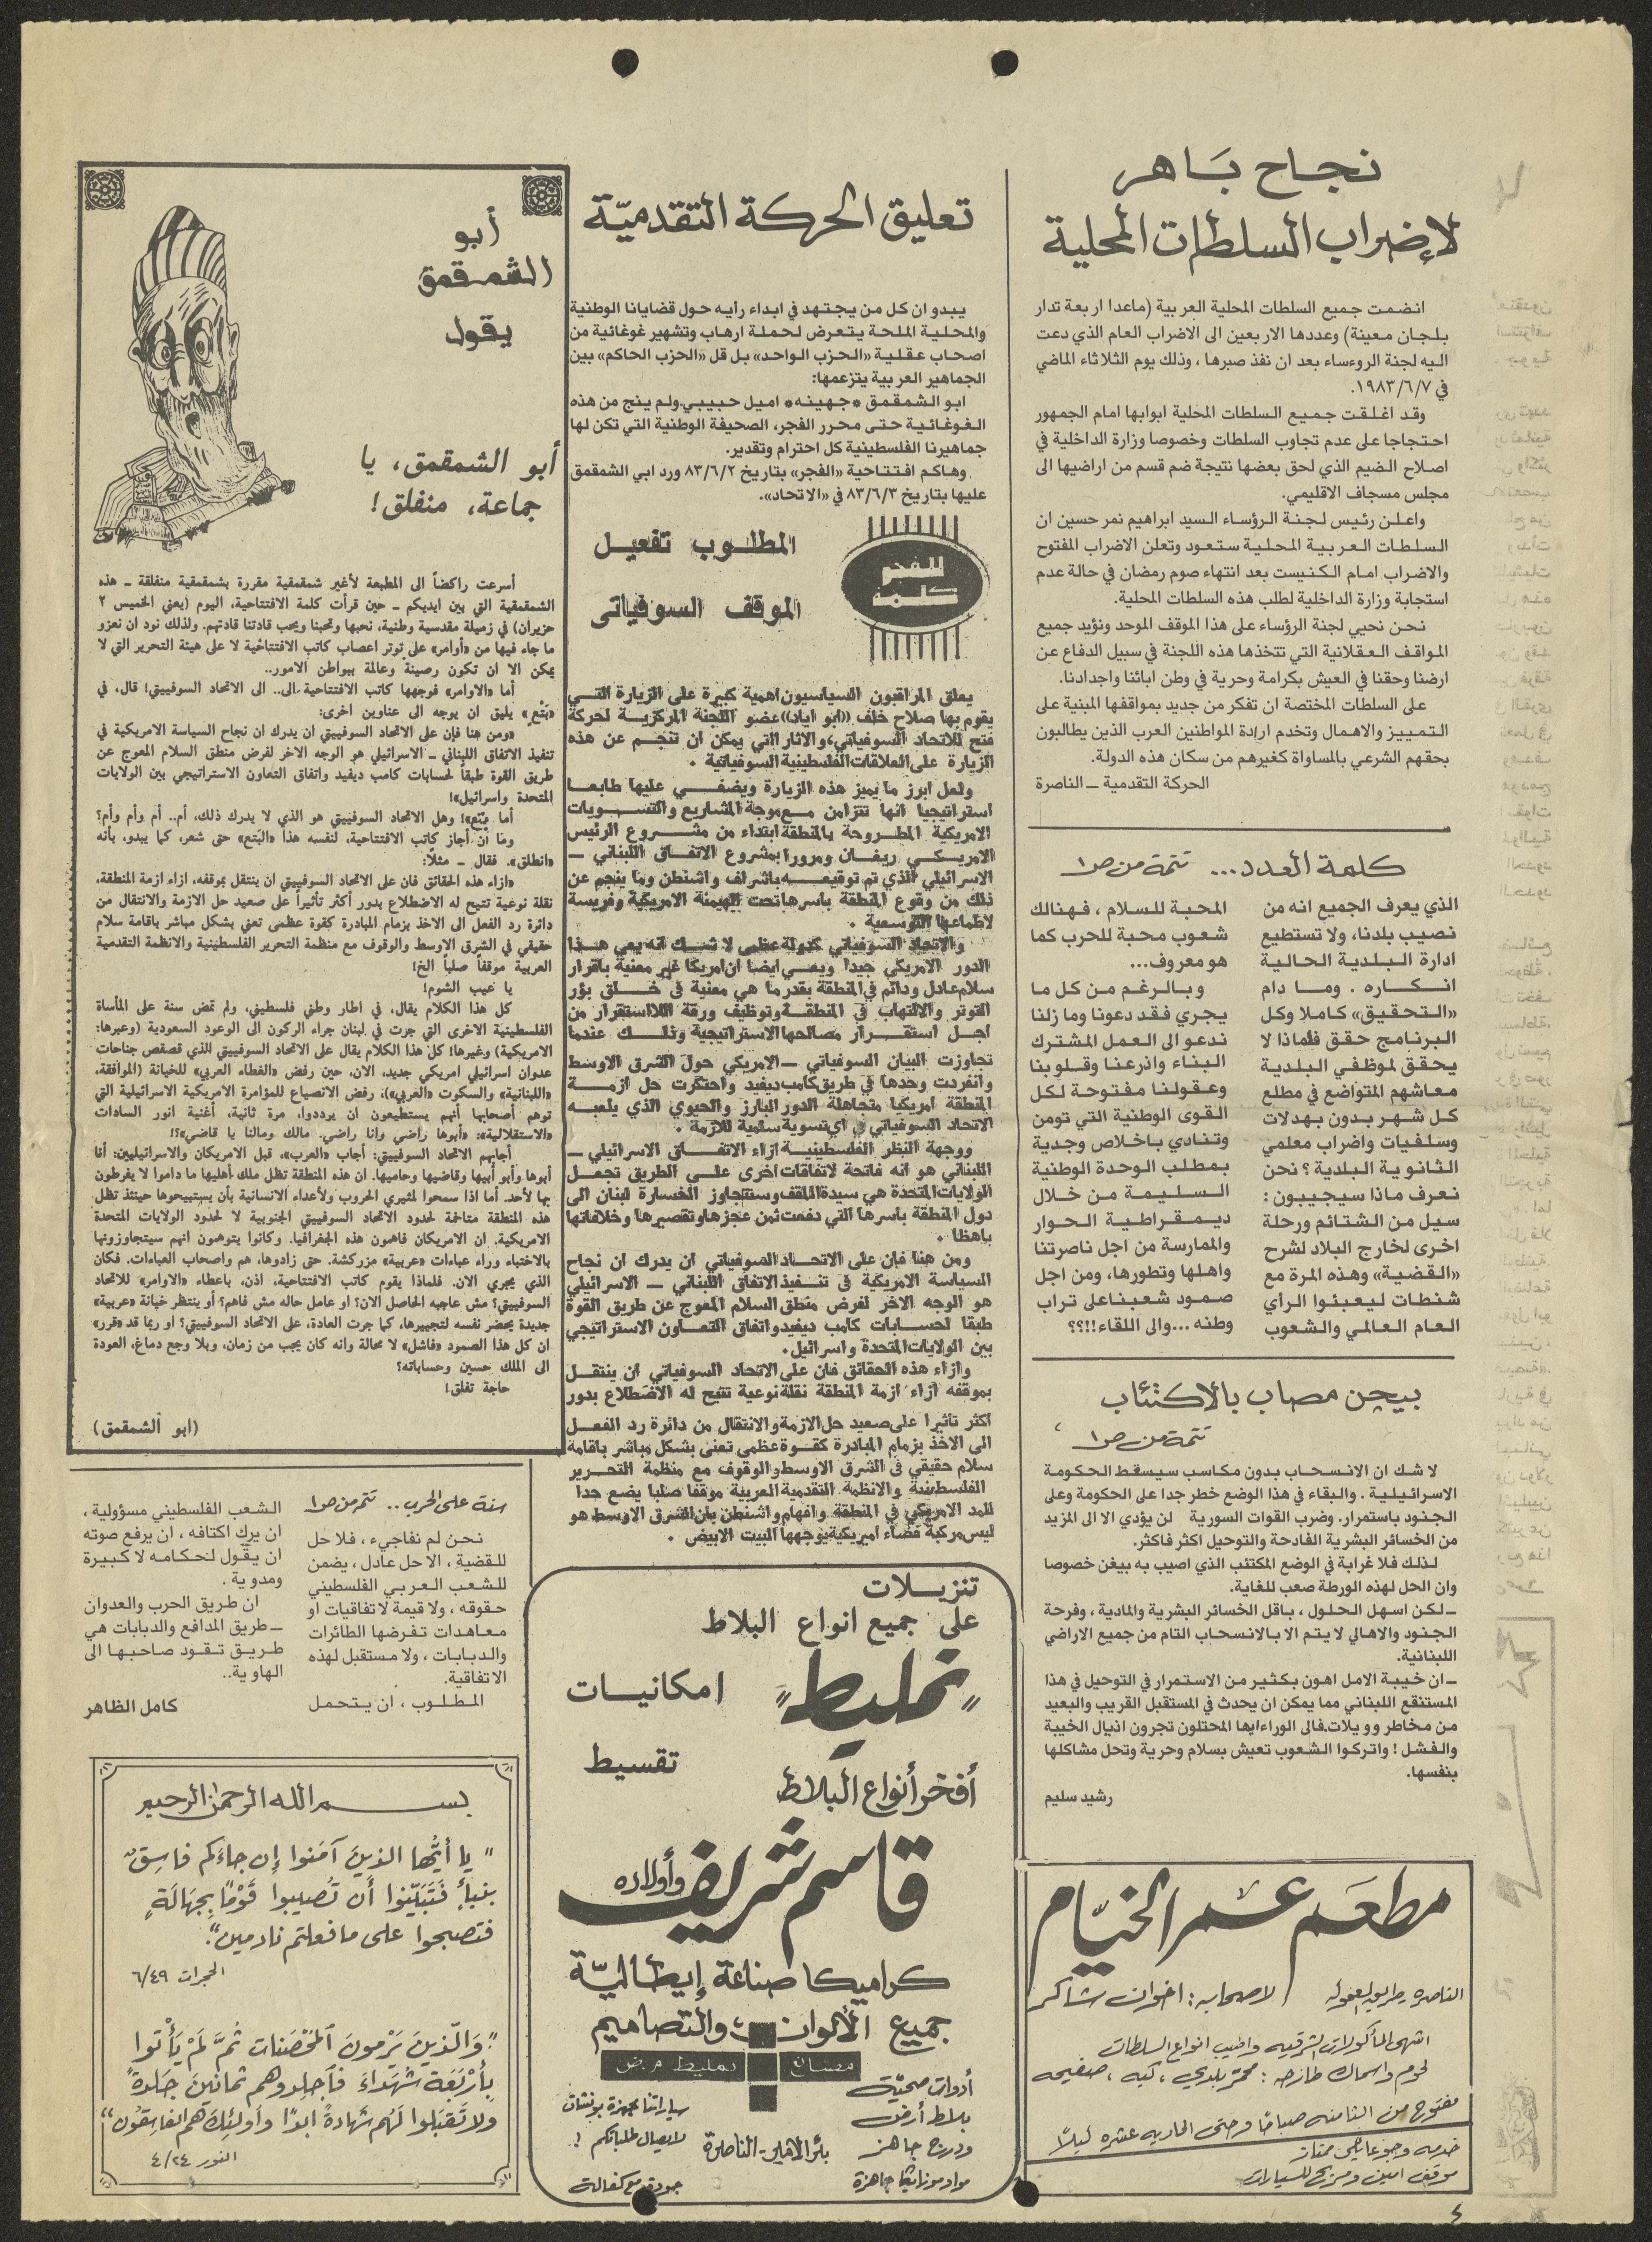 نجاح بَاهر
لإضراب السلطات المحلية
انضمت جميع السلطات المحلية العربية (ماعدا اربعة تدار
بلجان معينة) وعددها الاربعين الى الاضراب العام الذي دعت
اليه لجنة الروءساء بعد ان نفذ صبرها ، وذلك يوم الثلاثاء الماضي
في ١٩٨٣/٦/٧.
وقد اغلقت جميع السلطات المحلية ابوابها امام الجمهور
احتجاجا على عدم تجاوب السلطات وخصوصا وزارة الداخلية في
اصلاح الضيم الذي لحق بعضها نتيجة ضم قسم من اراضيها الى
مجلس مسجاف الاقليمي.
واعلن رئيس لجنة الرؤساء السيد ابراهيم نمر حسين ان
السلطات العربية المحلية ستعود وتعلن الاضراب المفتوح
والاضراب امام الكنيست بعد انتهاء صوم رمضان في حالة عدم
استجابة وزارة الداخلية لطلب هذه السلطات المحلية.
نحن نحيي لجنة الرؤساء على هذا الموقف الموحد ونؤيد جميع
المواقف العقلانية التي تتخذها هذه اللجنة في سبيل الدفاع عن
ارضنا وحقنا في العيش بكرامة وحرية في وطن ابائنا واجدادنا.
على السلطات المختصة ان تفكر من جديد بمواقفها المبنية على
التمييز والاهمال وتخدم ارادة المواطنين العرب الذين يطالبون
بحقهم الشرعي بالمساواة كغيرهم من سكان هذه الدولة.
الحركة التقدمية ــ الناصرة
كلمة العدد... تتمة من ص ١
الذي يعرف الجميع انه من
نصيب بلدنا، ولا تستطيع
ادارة البلدية الحالية
انكاره . وما دام
«التحقيق» كاملا وكل
البرنامج حقق فلماذا لا
يحقق لموظفي البلدية
معاشهم المتواضع في مطلع
كل شهر بدون بهدلات
وسلفيات واضراب معلمي
الثانوية البلدية ؟ نحن
نعرف ماذا سيجيبون :
سيل من الشتائم ورحلة
اخرى لخارج البلاد لشرح
«القضية» وهذه المرة مع
شنطات ليعبئوا الرأي
العام العالمي والشعوب
المحبة للسلام ، فهنالك
شعوب محبة للحرب كما
هو معروف...
وبالرغم من كل ما
يجري فقد دعونا وما زلنا
ندعو الى العمل المشترك
البناء واذرعنا وقلوبنا
وعقولنا مفتوحة لكل
القوى الوطنية التي تومن
وتنادي باخلاص وجدية
بمطلب الوحدة الوطنية
السليمة من خلال
ديمقراطية الحوار
والممارسة من اجل ناصرتنا
واهلها وتطورها، ومن اجل
صمود شعبنا على تراب
وطنه ...والى اللقاء!!؟؟
بيجن مصاب بالاكتئاب
تتمة من ص ١
لا شك ان الانسحاب بدون مكاسب سيسقط الحكومة
الاسرائيلية . والبقاء في هذا الوضع خطر جدا على الحكومة وعلى
الجنود باستمرار. وضرب القوات السورية لن يؤدي الا الى المزيد
من الخسائر البشرية الفادحة والتوحيل اكثر فاكثر.
لذلك فلا غرابة في الوضع المكتئب الذي اصيب به بيغن خصوصا
وان الحل لهذه الورطة صعب للغاية.
ــ لكن اسهل الحلول ، باقل الخسائر البشرية والمادية ، وفرحة
الجنود والاهالي لا يتم الا بالانسحاب التام من جميع الاراضي
اللبنانية.
ــ ان خيبة الامل اهون بكثير من الاستمرار في التوحيل في هذا
المستنقع اللبناني مما يمكن ان يحدث في المستقبل القريب والبعيد
من مخاطر وويلات.فالى الوراء ايها المحتلون تجرون اذيال الخيبة
والفشل ! واتركوا الشعوب تعيش بسلام وحرية وتحل مشاكلها
بنفسها.
رشيد سليم
مطعم عمر الخيّام
الناصرة طريق العفولة لاصحابه : اخوان شاكر
اشهى المأكولات الشرقيه واطيب انواع السلطات
لحوم واسماك طازجه : محمّر بلدي ، كبه ، صفيحه
مفتوح من الثامنه صباحًا وحتى الحاديه عشره ليلاً
خدمه وجو عائلي ممتاز
موقف امين ومريح للسيارات
٤
تعليق الحركة التقدميّة
يبدو ان كل من يجتهد في ابداء رأيه حول قضايانا الوطنية
والمحلية الملحة يتعرض لحملة ارهاب وتشهير غوغائية من
اصحاب عقلية «الحزب الواحد» بل قل «الحزب الحاكم» بين
الجماهير العربية يتزعمها:
ابو الشمقمق *جهينه* اميل حبيبي.ولم ينج من هذه
الغوغائية حتى محرر الفجر، الصحيفة الوطنية التي تكن لها
جماهيرنا الفلسطينية كل احترام وتقدير.
وهاكم افتتاحية «الفجر» بتاريخ ٨٣/٦/٢ ورد ابي الشمقمق
عليها بتاريخ ٨٣/٦/٣ في «الاتحاد».
للفجر
كلمة
المطلوب تفعيل
الموقف السوفياتى
يعلق المراقبون السياسيون اهمية كبيرة على الزيارة التي
يقوم بها صلاح خلف ((ابو اياد)) عضو اللجنة المركزية لحركة
فتح للاتحاد السوفياتي، والاثار التي يمكن ان تنجم عن هذه
الزيارة على العلاقات الفلسطينية السوفياتية .
ولعل ابرز ما يميز هذه الزيارة ويضفي عليها طابعا
استراتيجيا انها تتزامن مع موجة المشاريع والتسويات
الامريكية المطروحة بالمنطقة ابتداء من مشروع الرئيس
الامريكي ريغان ومرورا بمشروع الاتفاق اللبناني ــ
الاسرائيلي الذي تم توقيعه باشراف واشنطن وما ينجم عن
ذلك من وقوع المنطقة باسرها تحت الهيمنة الامريكية وفريسة
لاطماعها التوسعية .
والاتحاد السوفياتي كدولة عظمى لا شك انه يعي هذا
الدور الامريكي جيدا ويعي ايضا ان امريكا غير معنية باقرار
سلام عادل ودائم في المنطقة بقدر ما هي معنية في خلق بؤر
التوتر والالتهاب في المنطقة وتوظيف ورقة اللااستقرار من
اجل استقرار مصالحها الاستراتيجية وذلك عندما
تجاوزت البيان السوفياتي ــ الامريكي حول الشرق الاوسط
وانفردت وحدها في طريق كامب ديفيد واحتكرت حل ازمة
المنطقة امريكيا متجاهلة الدور البارز والحيوي الذي يلعبه
الاتحاد السوفياتي في اي تسوية سلمية للازمة .
ووجهة النظر الفلسطينية ازاء الاتفاق الاسرائيلي ــ
اللبناني هو انه فاتحة لاتفاقات اخرى على الطريق تجعل
الولايات المتحدة هي سيدة الملف وستتجاوز الخسارة لبنان الى
دول المنطقة باسرها التي دفعت ثمن عجزها وتقصيرها وخلافاتها
باهظا .
ومن هنا فان على الاتحاد السوفياتي ان يدرك ان نجاح
السياسة الامريكية في تنفيذ الاتفاق اللبناني ــ الاسرائيلي
هو الوجه الاخر لفرض منطق السلام المعوج عن طريق القوة
طبقا لحسابات كامب ديفيد واتفاق التعاون الاستراتيجي
بين الولايات المتحدة واسرائيل.
وازاء هذه الحقائق فان على الاتحاد السوفياتي ان ينتقل
بموقفه ازاء ازمة المنطقة نقلة نوعية تتيح له الاضطلاع بدور
اكثر تأثيرا على صعيد حل الازمة والانتقال من دائرة رد الفعل
الى الاخذ بزمام المبادرة كقوة عظمى تعنى بشكل مباشر باقامة
سلام حقيقي في الشرق الاوسط والوقوف مع منظمة التحرير
الفلسطينية والانظمة التقدمية العربية موقفا صلبا يضع حدا
للمد الامريكي في المنطقة وافهام واشنطن بان الشرق الاوسط هو
ليس مركبة فضاء امريكية يوجهها البيت الابيض .
تنزيلات
على جميع انواع البلاط
"نمليط" امكانيات
تقسيط
أفخر أنواع البلاط
قاسم شريف وأولاده
كراميكا صناعة إيطاليّة
جميع الألوان والتصاميم
مصنان نمليط م.ض
أدوات صحيّة
بلاط أرض
ودرج جاهز
مواد موناپشا جاهزة
سياراتنا مجهزة بونشات
لايصال طلباتكم !
بئر الامير - الناصرة
جودة مع كفالة
أبو
الشمقمق
يقول
أبو الشمقمق، يا
جماعة، منفلق!
أسرعت راكضاً الى المطبعة لأغير شمقمقية مقررة بشمقمقية منفلقة ــ هذه
الشمقمقية التي بين ايديكم ــ حين قرأت كلمة الافتتاحية، اليوم (يعني الخميس ٢
حزيران) في زميلة مقدسية وطنية، نحبها وتحبنا ويحب قادتنا قادتهم. ولذلك نود ان نعزو
ما جاء فيها من «أوامر» على توتر اعصاب كاتب الافتتاحية لا على هيئة التحرير التي لا
يمكن الا ان تكون رصينة وعالمة ببواطن الامور..
أما «الاوامر» فوجهها كاتب الافتتاحية.الى.. الى الاتحاد السوفييتي! قال، في
«بَتْع» يليق ان يوجه الى عناوين اخرى:
«ومن هنا فإن على الاتحاد السوفييتي ان يدرك ان نجاح السياسة الامريكية في
تنفيذ الاتفاق اللبناني ــ الاسرائيلي هو الوجه الاخر لفرض منطق السلام المعوج عن
طريق القوة طبقاً لحسابات كامب ديفيد واتفاق التعاون الاستراتيجي بين الولايات
المتحدة واسرائيل»!
أما بِتْع»! وهل الاتحاد السوفييتي هو الذي لا يدرك ذلك، أم.. أم وأم وأم؟
وما أن أجاز كاتب الافتتاحية، لنفسه هذا «البَتع» حتى شعر، كما يبدو، بأنه
«انطلق». فقال ــ مثلاً:
«ازاء هذه الحقائق فان على الاتحاد السوفييتي ان ينتقل بموقفه، ازاء ازمة المنطقة،
نقلة نوعية تتيح له الاضطلاع بدور أكثر تأثيراً على صعيد حل الازمة والانتقال من
دائرة رد الفعل الى الاخذ بزمام المبادرة كقوة عظمى تعني بشكل مباشر باقامة سلام
حقيقي في الشرق الاوسط والوقوف مع منظمة التحرير الفلسطينية والانظمة التقدمية
العربية موقفاً صلباً الخ!
يا عيب الشوم!
كل هذا الكلام يقال، في اطار وطني فلسطيني، ولم تمض سنة على المأساة
الفلسطينية الاخرى التي جرت في لبنان جراء الركون الى الوعود السعودية (وعبرها:
الامريكية) وغيرها! كل هذا الكلام يقال على الاتحاد السوفييتي الذي قصقص جناحات
عدوان اسرائيلي امريكي جديد، الان، حين رفض «الغطاء العربي» للخيانة (الموافقة،
«اللبنانية» والسكوت «العربي»)، رفض الانصياع للمؤامرة الامريكية الاسرائيلية التي
توهم أصحابها أنهم يستطيعون ان يرددوا، مرة ثانية، أغنية انور السادات
«الاستقلالية»: «أبوها راضي وانا راضي. مالك ومالنا يا قاضي»؟!
أجابهم الاتحاد السوفييتي: أجاب «العرب»، قبل الامريكان والاسرائيليين: أنا
أبوها وأبو أبيها وقاضيها وحاميها. ان هذه المنطقة تظل ملك أهليها ما داموا لا يفرطون
بها لأحد. أما اذا سمحوا لمثيري الحروب ولأعداء الانسانية بأن يستبيحوها حينئذ تظل
هذه المنطقة متاخمة لحدود الاتحاد السوفييتي الجنوبية لا لحدود الولايات المتحدة
الامريكية. ان الامريكان فاهمون هذه الجغرافيا. وكانوا يتوهمون انهم سيتجاوزونها
بالاختباء وراء عباءات «عربية» مزركشة. حتى زادوها، هم واصحاب العباءات. فكان
الذي يجري الان. فلماذا يقوم كاتب الافتتاحية، اذن، باعطاء «الاوامر» للاتحاد
السوفييتي؟ مش عاجبه الحاصل الان؟ او عامل حاله مش فاهم؟ أو ينتظر خيانة «عربية»
جديدة يحضر نفسه لتجييرها، كما جرت العادة، على الاتحاد السوفييتي؟ او ربما قد «قرر»
ان كل هذا الصمود «فاشل» لا محالة وانه كان يجب من زمان، وبلا وجع دماغ، العودة
الى الملك حسين وحساباته؟
حاجة تفلق!
(ابو الشمقمق)
سنة على الحرب.. تتمة من ص ١
نحن لم نفاجيء ، فلا حل
للقضية ، الا حل عادل ، يضمن
للشعب العربي الفلسطيني
حقوقه ، ولا قيمة لاتفاقيات او
معاهدات تفرضها الطائرات
والدبابات ، ولا مستقبل لهذه
الاتفاقية.
المطلوب ، ان يتحمل
الشعب الفلسطيني مسؤولية ،
ان يرك اكتافه ، ان يرفع صوته
ان يقول لحكامه لا كبيرة
ومدوية .
ان طريق الحرب والعدوان
ــ طريق المدافع والدبابات هي
طريق تقود صاحبها الى
الهاوية..
كامل الظاهر
بسم الله الرحمن الرحيم
"يا أيُّها الذينَ آمَنوا إن جاءَكم فاسِقٌ
بنبأٍ فَتَبَيّنوا أَن تُصيبوا قَوْمًا بِجَهَالَةٍ
فتصبحوا على ما فعلتم نادمين".
الحجرات ٦/٤٩
"وَالّذينَ يَرْمونَ المُحْصَنات ثُمَّ لَمْ يَأْتوا
بِأَرْبَعَة شُهَداءَ فَاجلِدوهم ثمانينَ جَلدةً
ولا تَقبَلوا لَهُم شَهادةً ابدًا وأولئِكَ هم الفاسِقُون"
النور ٤/٢٤